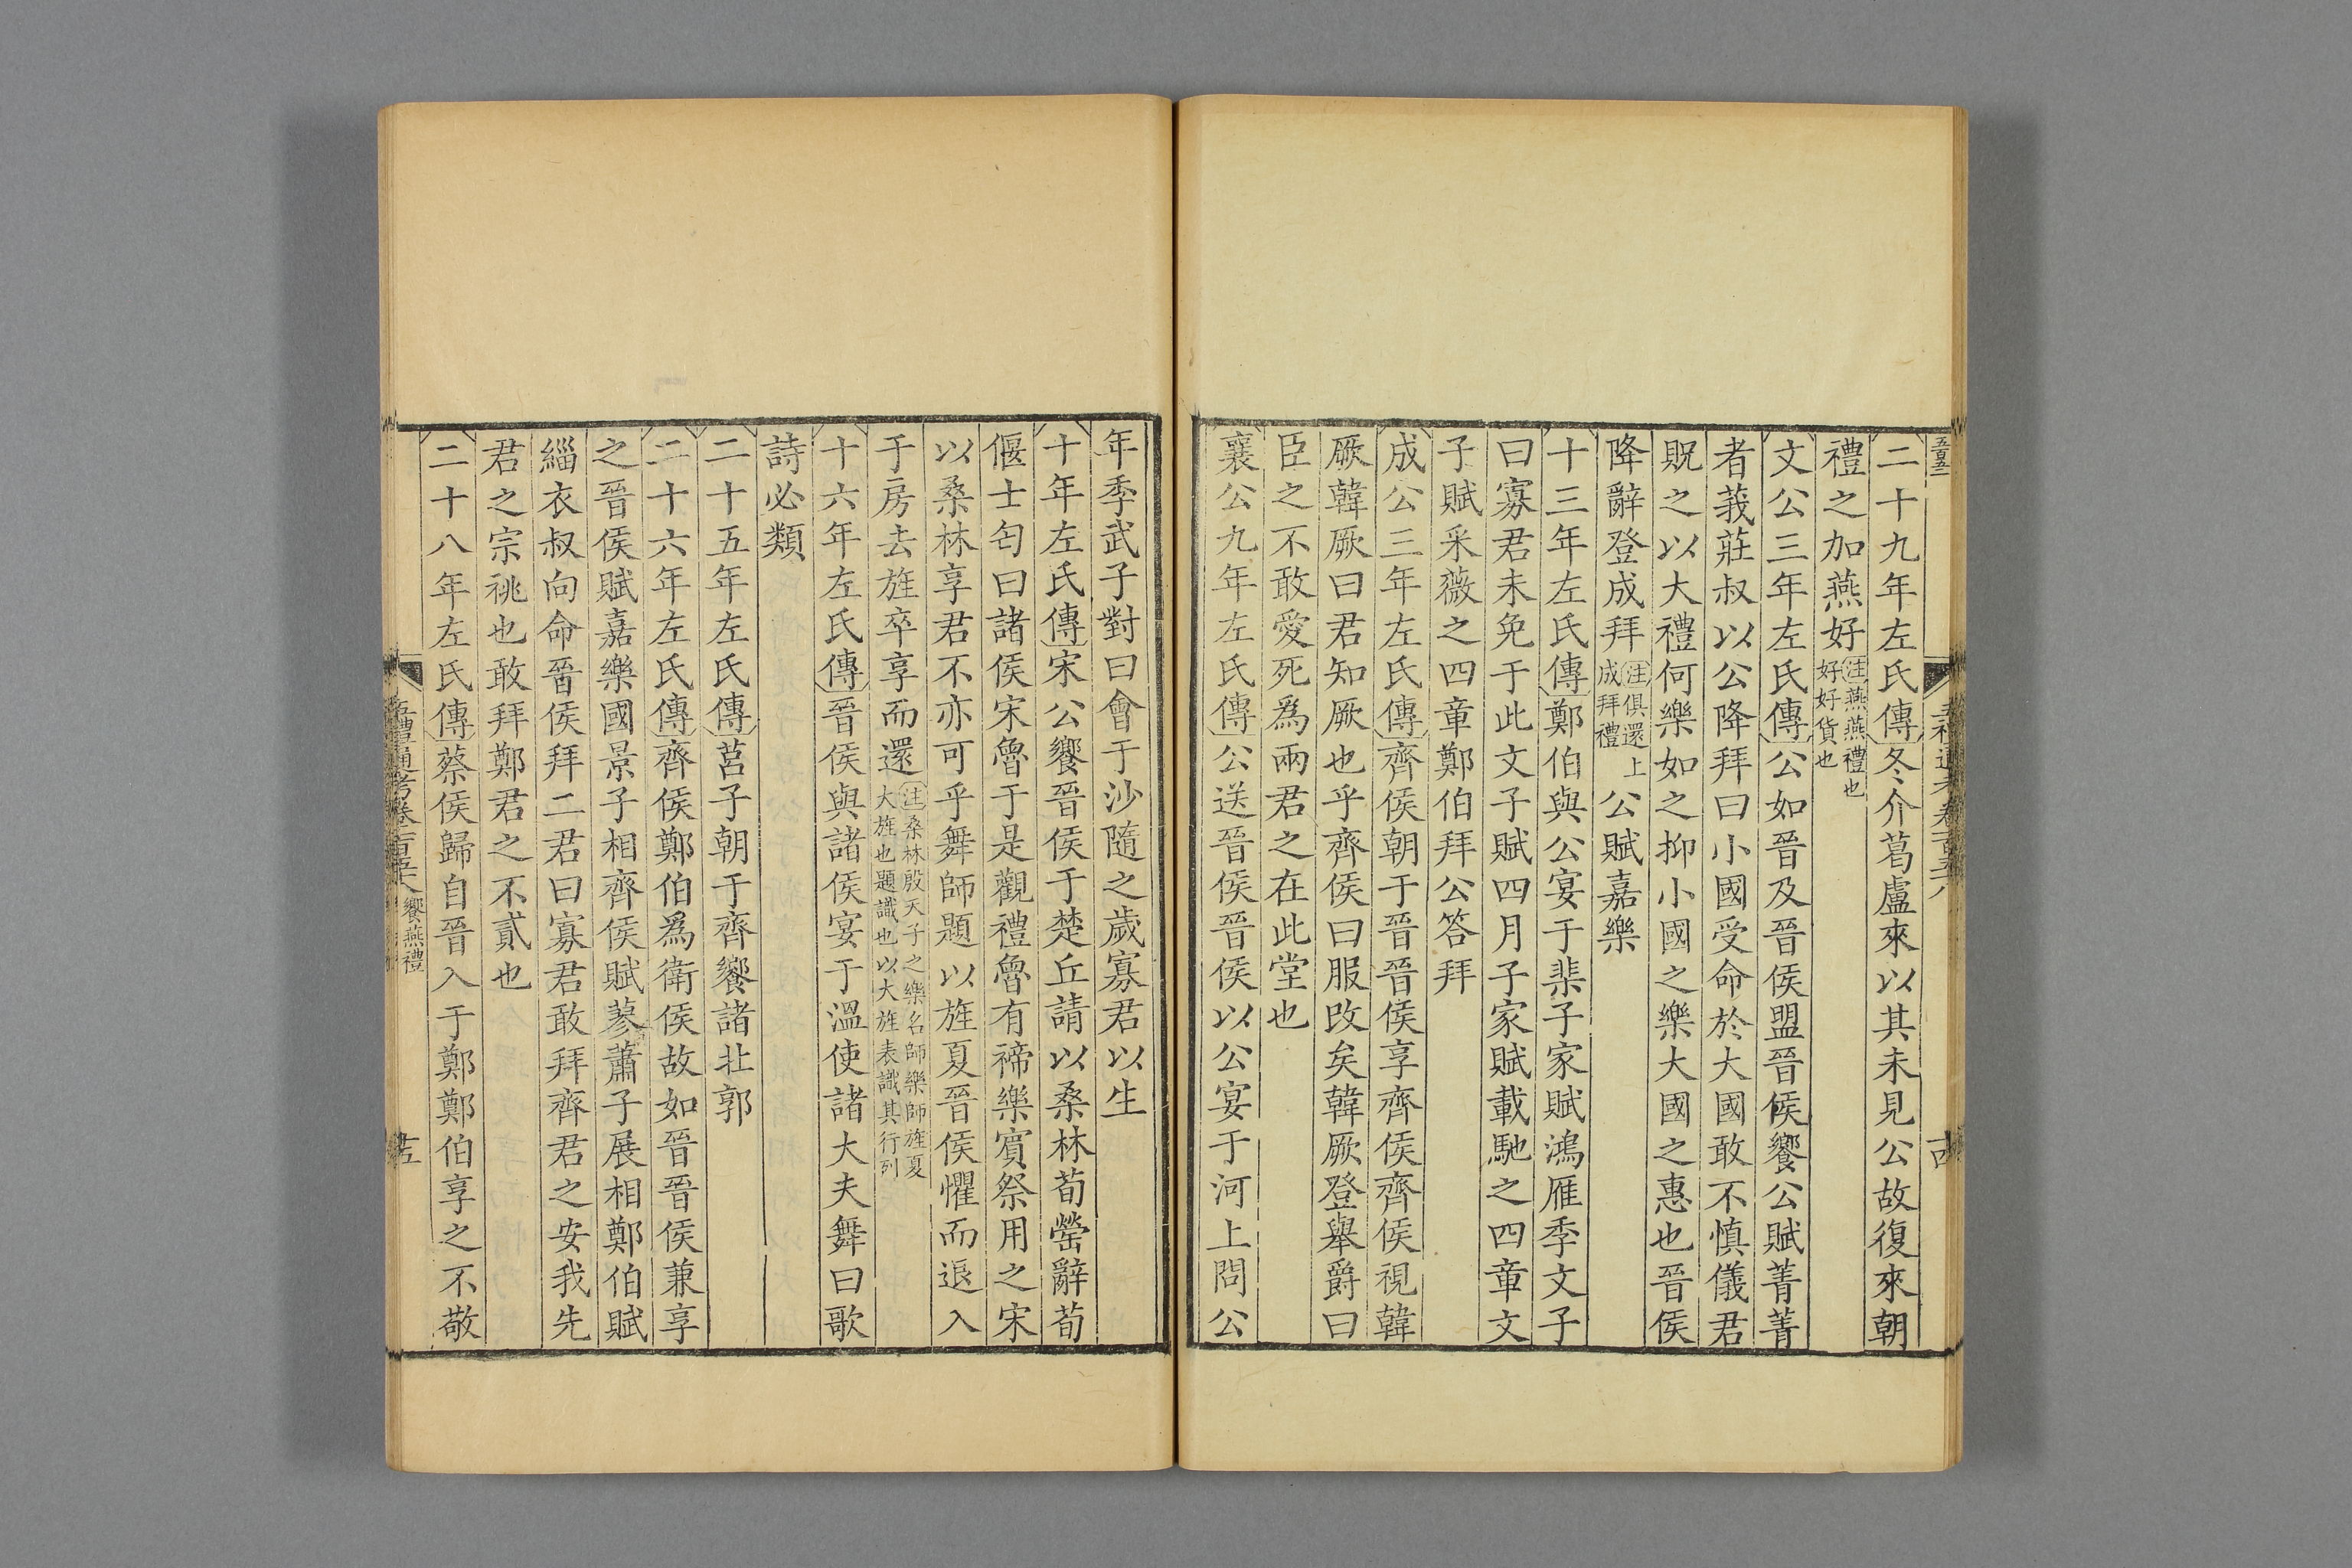 二十九年左氏傳冬介葛盧來以其未見公故復來朝
禮之加燕好注燕燕禮也
好好貨也
文公三年左氏傳公如晉及晉侯盟晉侯饗公賦菁菁
者莪莊叔以公降拜曰小國受命於大國敢不慎儀君
貺之以大禮何樂如之抑小國之樂大國之惠也晉侯
降辭登成拜注俱還上
成拜禮
公賦嘉樂
十三年左氏傳鄭伯與公宴于棐子家賦鴻雁季文子
曰寡君未免于此文子賦四月子家賦載馳之四章文
子賦采薇之四章鄭伯拜公答拜
成公三年左氏傳齊侯朝于晉晉侯享齊侯齊侯視韓
厥韓厥曰君知厥也乎齊侯曰服改矣韓厥登舉爵曰
臣之不敢愛死為兩君之在此堂也
襄公九年左氏傳公送晉侯晉侯以公宴于河上問公
年季武子對曰會于沙隨之歲寡君以生
十年左氏傳宋公饗晉侯于楚丘請以桑林荀罃辭荀
偃士匄曰諸侯宋魯于是觀禮魯有禘樂賓祭用之宋
以桑林享君不亦可乎舞師題以旌夏晉侯懼而退入
于房去旌卒享而還注桑林殷天子之樂名師樂師旌夏
大旌也題識也以大旌表識其行列
十六年左氏傳晉侯與諸侯宴于溫使諸大夫舞曰歌
詩必類
二十五年左氏傳莒子朝于齊饗諸北郭
二十六年左氏傳齊侯鄭伯為衛侯故如晉晉侯兼享
之晉侯賦嘉樂國景子相齊侯賦蓼蕭子展相鄭伯賦
緇衣叔向命晉侯拜二君曰寡君敢拜齊君之安我先
君之宗祧也敢拜鄭君之不貳也
二十八年左氏傳蔡侯歸自晉入于鄭鄭伯享之不敬
五禮通考卷一百五十八 饗燕禮